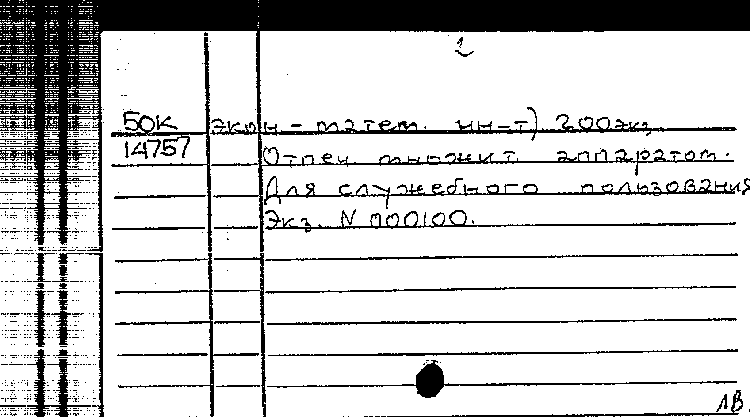 2
50К экон-матем. ин-т) 200экз.
14757 Отпеч. множит. аппаратом.
Для служебного пользования
Экз. N 000100.
ЛВ